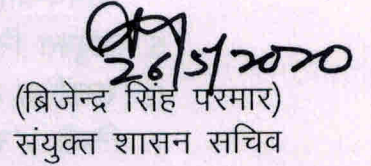 26/5/2020
(ब्रिजेन्द्र सिंह परमार)
संयुक्त शासन सचिव